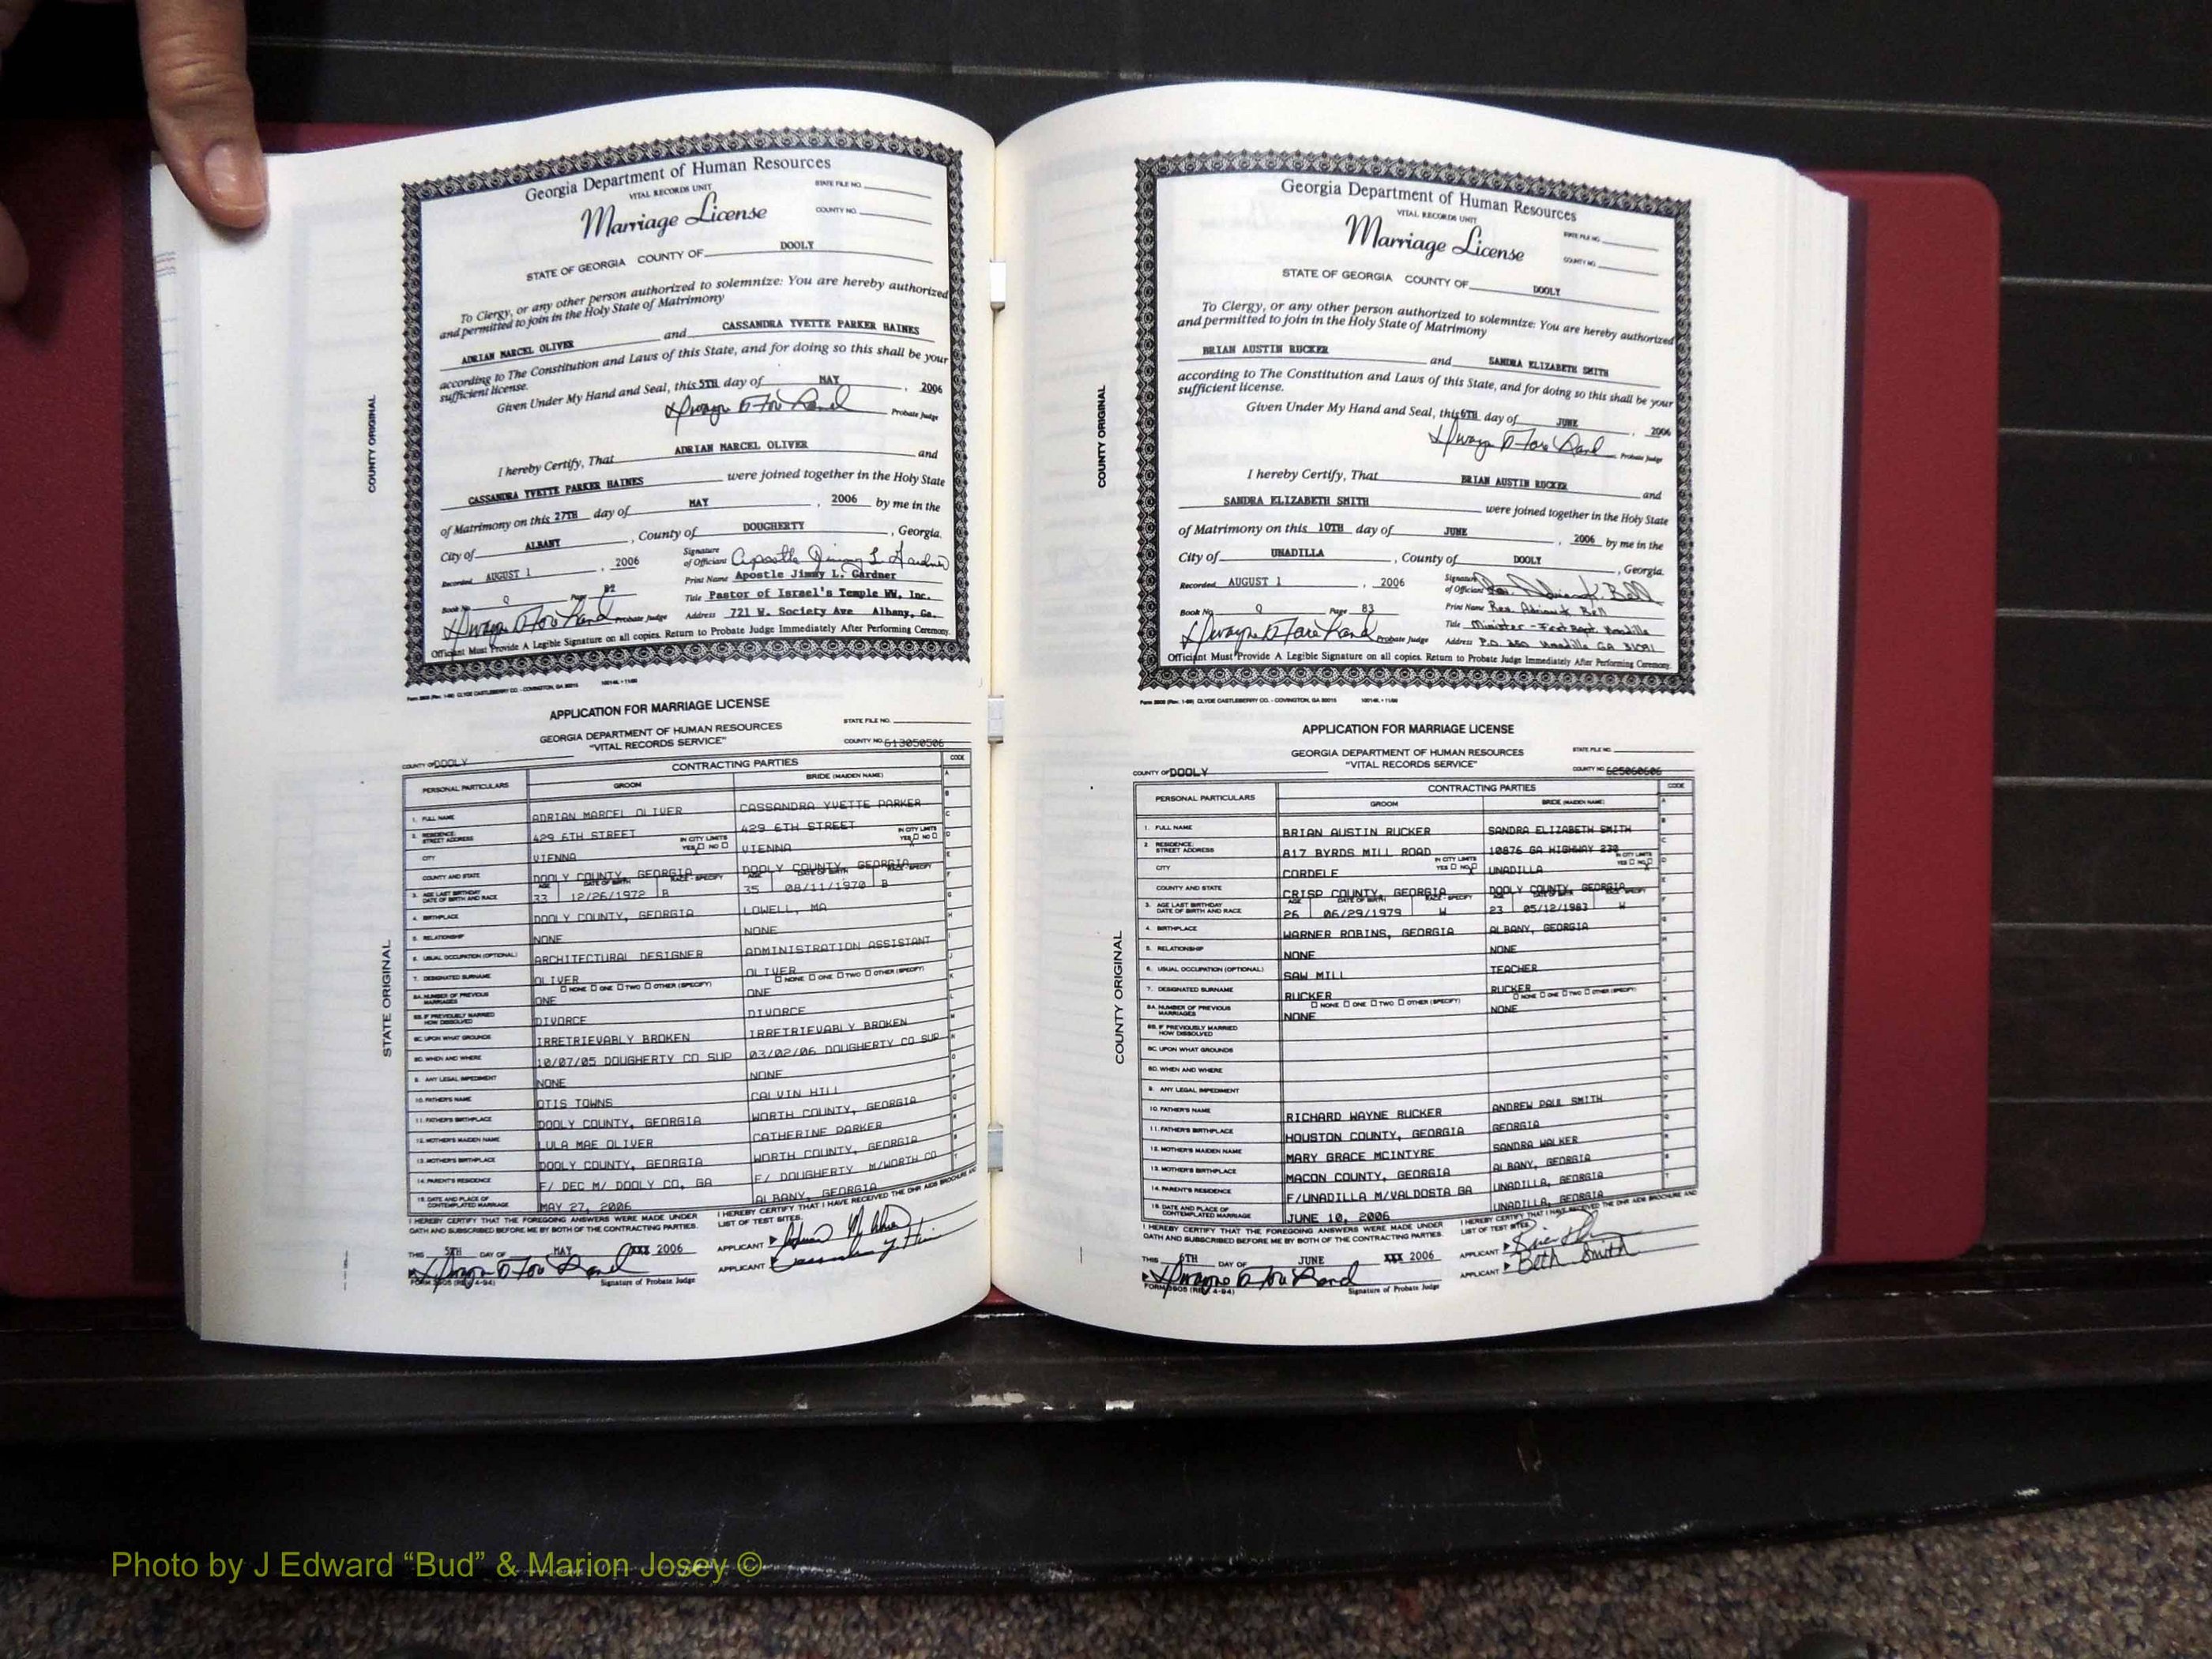 Georgia Department of Human Resources
VITAL RECORDS UNIT
STATE FILE NO.
Marriage License
COUNTY NO.
STATE OF GEORGIA COUNTY OF DOOLY
To Clergy, or any other person authorized to solemnize: You are hereby authorized
and permitted to join in the Holy State of Matrimony
ADRIAN MARCEL OLIVER and CASSANDRA YVETTE PARKER HAINES
according to The Constitution and Laws of this State, and for doing so this shall be your
sufficient license.
Given Under My Hand and Seal, this 5TH day of MAY, 2006
Probate Judge
I hereby Certify, That ADRIAN MARCEL OLIVER and
CASSANDRA YVETTE PARKER HAINES were joined together in the Holy State
of Matrimony on this 27TH day of MAY, 2006 by me in the
City of ALBANY, County of DOUGHERTY, Georgia.
Recorded AUGUST 1, 2006
Signature of Officiant Apostle Jimmy L. Gardner
Print Name Apostle Jimmy L. Gardner
Book No. Q Page 82
Title Pastor of Israel's Temple WW, Inc.
Probate Judge
Address 721 W. Society Ave Albany, Ga.
Officiant Must Provide A Legible Signature on all copies. Return to Probate Judge Immediately After Performing Ceremony.
COUNTY ORIGINAL
APPLICATION FOR MARRIAGE LICENSE
GEORGIA DEPARTMENT OF HUMAN RESOURCES
"VITAL RECORDS SERVICE"
STATE FILE NO.
COUNTY NO. 613050506
COUNTY OF DOOLY
PERSONAL PARTICULARS
CONTRACTING PARTIES
CODE
GROOM
BRIDE (MAIDEN NAME)
1. FULL NAME ADRIAN MARCEL OLIVER CASSANDRA YVETTE PARKER
2. RESIDENCE: STREET ADDRESS 429 6TH STREET 429 6TH STREET
IN CITY LIMITS YES NO
CITY VIENNA VIENNA
COUNTY AND STATE DOOLY COUNTY, GEORGIA DOOLY COUNTY, GEORGIA
3. AGE LAST BIRTHDAY DATE OF BIRTH AND RACE 33 12/26/1972 B 35 08/11/1970 B
4. BIRTHPLACE DOOLY COUNTY, GEORGIA LOWELL, MA
5. RELATIONSHIP NONE NONE
6. USUAL OCCUPATION (OPTIONAL) ARCHITECTURAL DESIGNER ADMINISTRATION ASSISTANT
7. DESIGNATED SURNAME OLIVER OLIVER
8A. NUMBER OF PREVIOUS MARRIAGES ONE ONE
8B. IF PREVIOUSLY MARRIED HOW DISSOLVED DIVORCE DIVORCE
8C. UPON WHAT GROUNDS IRRETRIEVABLY BROKEN IRRETRIEVABLY BROKEN
8D. WHEN AND WHERE 10/07/05 DOUGHERTY CO SUP 03/02/06 DOUGHERTY CO SUP
9. ANY LEGAL IMPEDIMENT NONE NONE
10. FATHER'S NAME OTIS TOWNS CALVIN HILL
11. FATHER'S BIRTHPLACE DOOLY COUNTY, GEORGIA WORTH COUNTY, GEORGIA
12. MOTHER'S MAIDEN NAME LULA MAE OLIVER CATHERINE PARKER
13. MOTHER'S BIRTHPLACE DOOLY COUNTY, GEORGIA WORTH COUNTY, GEORGIA
14. PARENT'S RESIDENCE F/ DEC M/ DOOLY CO, GA F/ DOUGHERTY M/WORTH CO
15. DATE AND PLACE OF CONTEMPLATED MARRIAGE MAY 27, 2006 ALBANY, GEORGIA
I HEREBY CERTIFY THAT THE FOREGOING ANSWERS WERE MADE UNDER
OATH AND SUBSCRIBED BEFORE ME BY BOTH OF THE CONTRACTING PARTIES.
I HEREBY CERTIFY THAT I HAVE RECEIVED THE DHR AIDS BROCHURE AND
LIST OF TEST SITES.
THIS 5TH DAY OF MAY XXX 2006
APPLICANT
APPLICANT
FORM 3905 (REV. 4-94) Signature of Probate Judge
STATE ORIGINAL
Georgia Department of Human Resources
VITAL RECORDS UNIT
STATE FILE NO.
Marriage License
COUNTY NO.
STATE OF GEORGIA COUNTY OF DOOLY
To Clergy, or any other person authorized to solemnize: You are hereby authorized
and permitted to join in the Holy State of Matrimony
BRIAN AUSTIN RUCKER and SANDRA ELIZABETH SMITH
according to The Constitution and Laws of this State, and for doing so this shall be your
sufficient license.
Given Under My Hand and Seal, this 6TH day of JUNE, 2006
Probate Judge
I hereby Certify, That BRIAN AUSTIN RUCKER and
SANDRA ELIZABETH SMITH were joined together in the Holy State
of Matrimony on this 10TH day of JUNE, 2006 by me in the
City of UNADILLA, County of DOOLY, Georgia.
Recorded AUGUST 1, 2006
Signature of Officiant
Book No. Q Page 83
Print Name Rev. Adrian K Bell
Title Minister - First Bapt Unadilla
Probate Judge
Address P.O. 250 Unadilla GA 31091
Officiant Must Provide A Legible Signature on all copies. Return to Probate Judge Immediately After Performing Ceremony.
COUNTY ORIGINAL
APPLICATION FOR MARRIAGE LICENSE
GEORGIA DEPARTMENT OF HUMAN RESOURCES
"VITAL RECORDS SERVICE"
STATE FILE NO.
COUNTY NO. 625060606
COUNTY OF DOOLY
PERSONAL PARTICULARS
CONTRACTING PARTIES
CODE
GROOM
BRIDE (MAIDEN NAME)
1. FULL NAME BRIAN AUSTIN RUCKER SANDRA ELIZABETH SMITH
2. RESIDENCE: STREET ADDRESS 817 BYRDS MILL ROAD 10876 GA HIGHWAY 230
IN CITY LIMITS YES NO
CITY CORDELE UNADILLA
COUNTY AND STATE CRISP COUNTY, GEORGIA DOOLY COUNTY, GEORGIA
3. AGE LAST BIRTHDAY DATE OF BIRTH AND RACE 26 06/29/1979 W 23 05/12/1983 W
4. BIRTHPLACE WARNER ROBINS, GEORGIA ALBANY, GEORGIA
5. RELATIONSHIP NONE NONE
6. USUAL OCCUPATION (OPTIONAL) SAW MILL TEACHER
7. DESIGNATED SURNAME RUCKER RUCKER
8A. NUMBER OF PREVIOUS MARRIAGES NONE NONE
8B. IF PREVIOUSLY MARRIED HOW DISSOLVED
8C. UPON WHAT GROUNDS
8D. WHEN AND WHERE
9. ANY LEGAL IMPEDIMENT
10. FATHER'S NAME RICHARD WAYNE RUCKER ANDREW PAUL SMITH
11. FATHER'S BIRTHPLACE HOUSTON COUNTY, GEORGIA GEORGIA
12. MOTHER'S MAIDEN NAME MARY GRACE MCINTYRE SANDRA WALKER
13. MOTHER'S BIRTHPLACE MACON COUNTY, GEORGIA ALBANY, GEORGIA
14. PARENT'S RESIDENCE F/UNADILLA M/VALDOSTA GA UNADILLA, GEORGIA
15. DATE AND PLACE OF CONTEMPLATED MARRIAGE JUNE 10, 2006 UNADILLA, GEORGIA
I HEREBY CERTIFY THAT THE FOREGOING ANSWERS WERE MADE UNDER
OATH AND SUBSCRIBED BEFORE ME BY BOTH OF THE CONTRACTING PARTIES.
I HEREBY CERTIFY THAT I HAVE RECEIVED THE DHR AIDS BROCHURE AND
LIST OF TEST SITES.
THIS 6TH DAY OF JUNE XXX 2006
APPLICANT
APPLICANT Beth Smith
FORM 3905 (REV. 4-94) Signature of Probate Judge
COUNTY ORIGINAL
Photo by J Edward “Bud” & Marion Josey ©